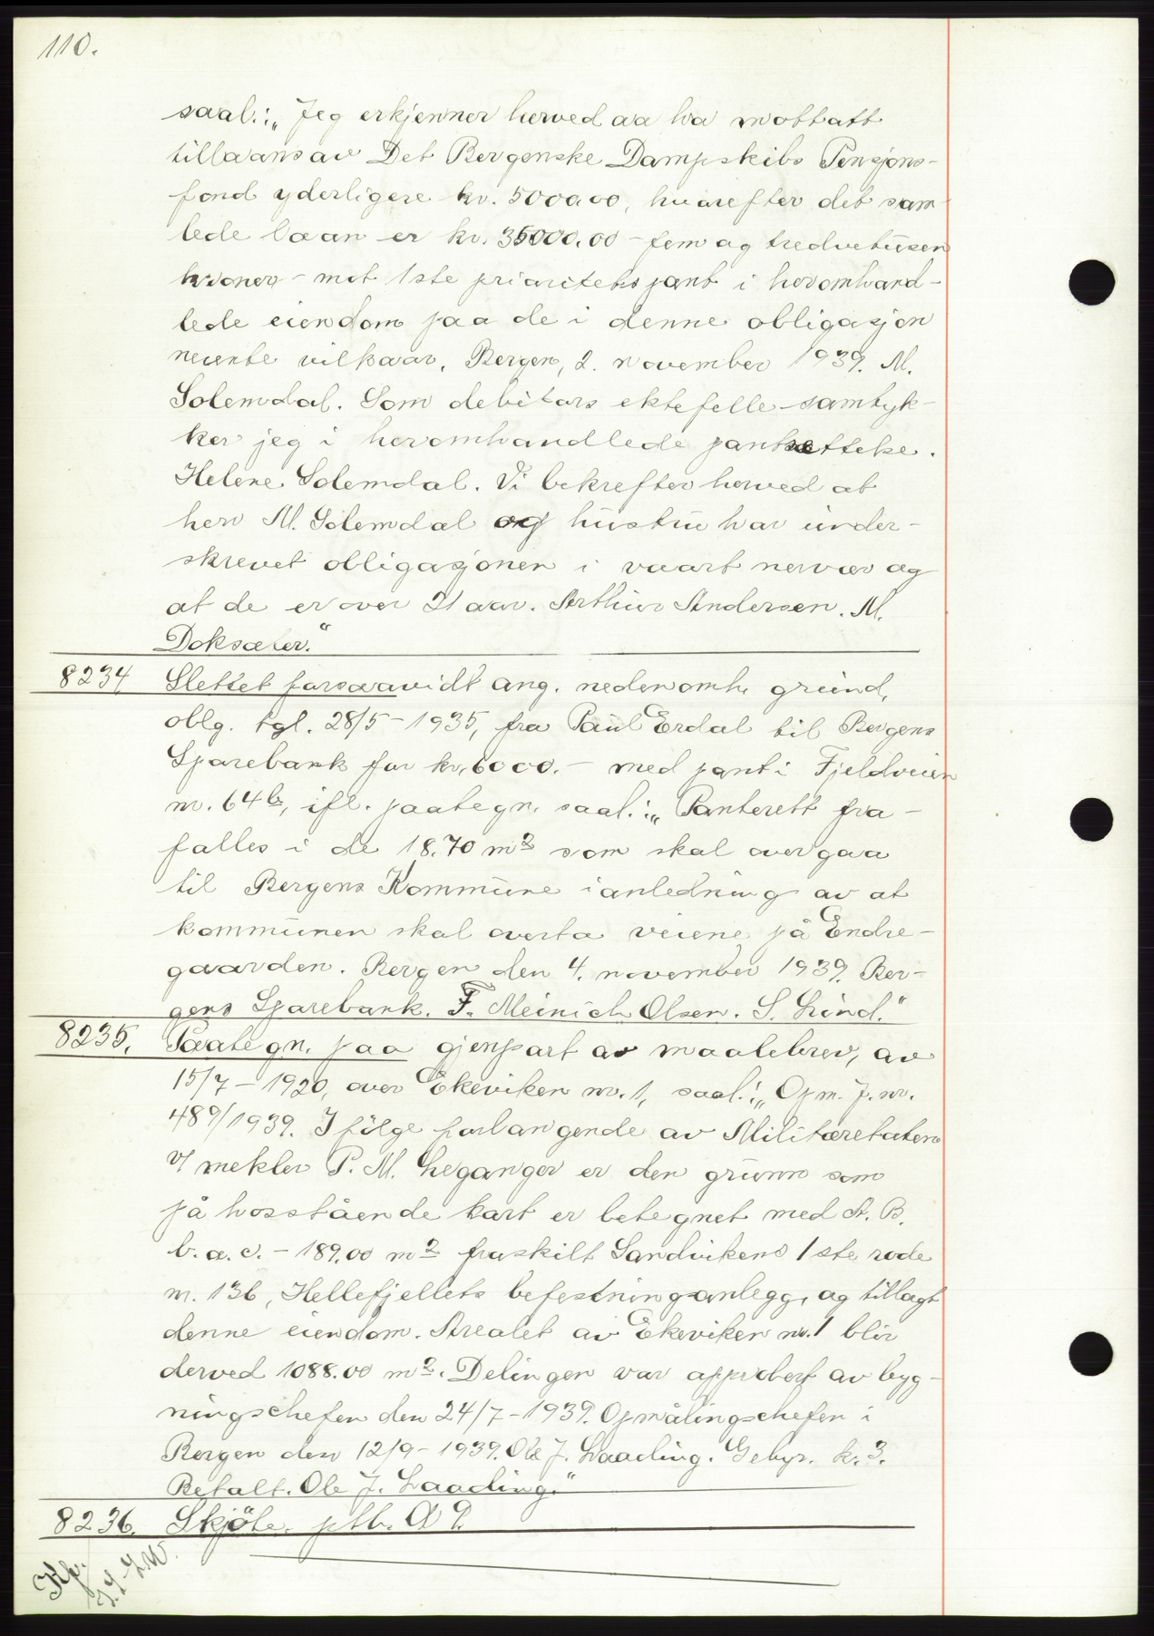 110.
saal.: „Jeg erkjenner herved aa ha mottatt
tillaans av Det Bergenske Dampskibs Pensjons-
fond yderligere kr. 5000.00, hvorefter det sam-
lede laan er kr. 35000.00 - fem og tredvetusen
kroner - mot 1ste prioritets pant i heromhand-
lede eiendom paa de i denne obligasjon
nevnte vilkaar. Bergen, 2. november 1939. M.
Solemdal. Som debitors ektefelle samtyk-
ker jeg i heromhandlede pantsettelse.
Helene Solemdal. Vi bekrefter herved at
herr M. Solemdal og hustru har under-
skrevet obligasjonen i vaart nervær og
at de er over 21 aar. Arthur Andersen. M.
Doksæter."
8234 Slettet forsaavidt ang. nedenomh. grund,
oblg. tgl. 28/5-1935, fra Paul Erdal til Bergens
Sparebank for kr. 6000.- med pant i Fjeldveien
nr. 64b, ifl. paategn. saal.: „Panterett fra-
falles i de 18.70 m2 som skal overgaa
til Bergens Kommune i anledning av at
kommunen skal overta veiene på Endre-
gaarden. Bergen den 4. november 1939. Ber-
gens Sparebank. F. Meinich Olsen. S. Lind."
8235. Paategn. paa gjenpart av maalebrev, av
15/7-1920, over Ekeviken nr. 1, saal.: „Opm. J. nr.
489/1939. I følge forlangende av Militæretaten
v/ mekler P. M. Leganger er den grunn som
på hosstående kart er betegnet med A. B.
b. a. c. - 189.00 m2 fraskilt Sandvikens 1ste rode
nr. 136, Hellefjellets befestningsanlegg, og tillagt
denne eiendom. Arealet av Ekeviken nr. 1 blir
derved 1088.00 m2. Delingen var approbert av byg-
ningschefen den 24/7-1939. Opmålingschefen i
Bergen den 12/9-1939. Ole J. Laading. Gebyr. kr. 3.
Betalt. Ole J. Laading."
8236. Skjøte, ptb. A 9.